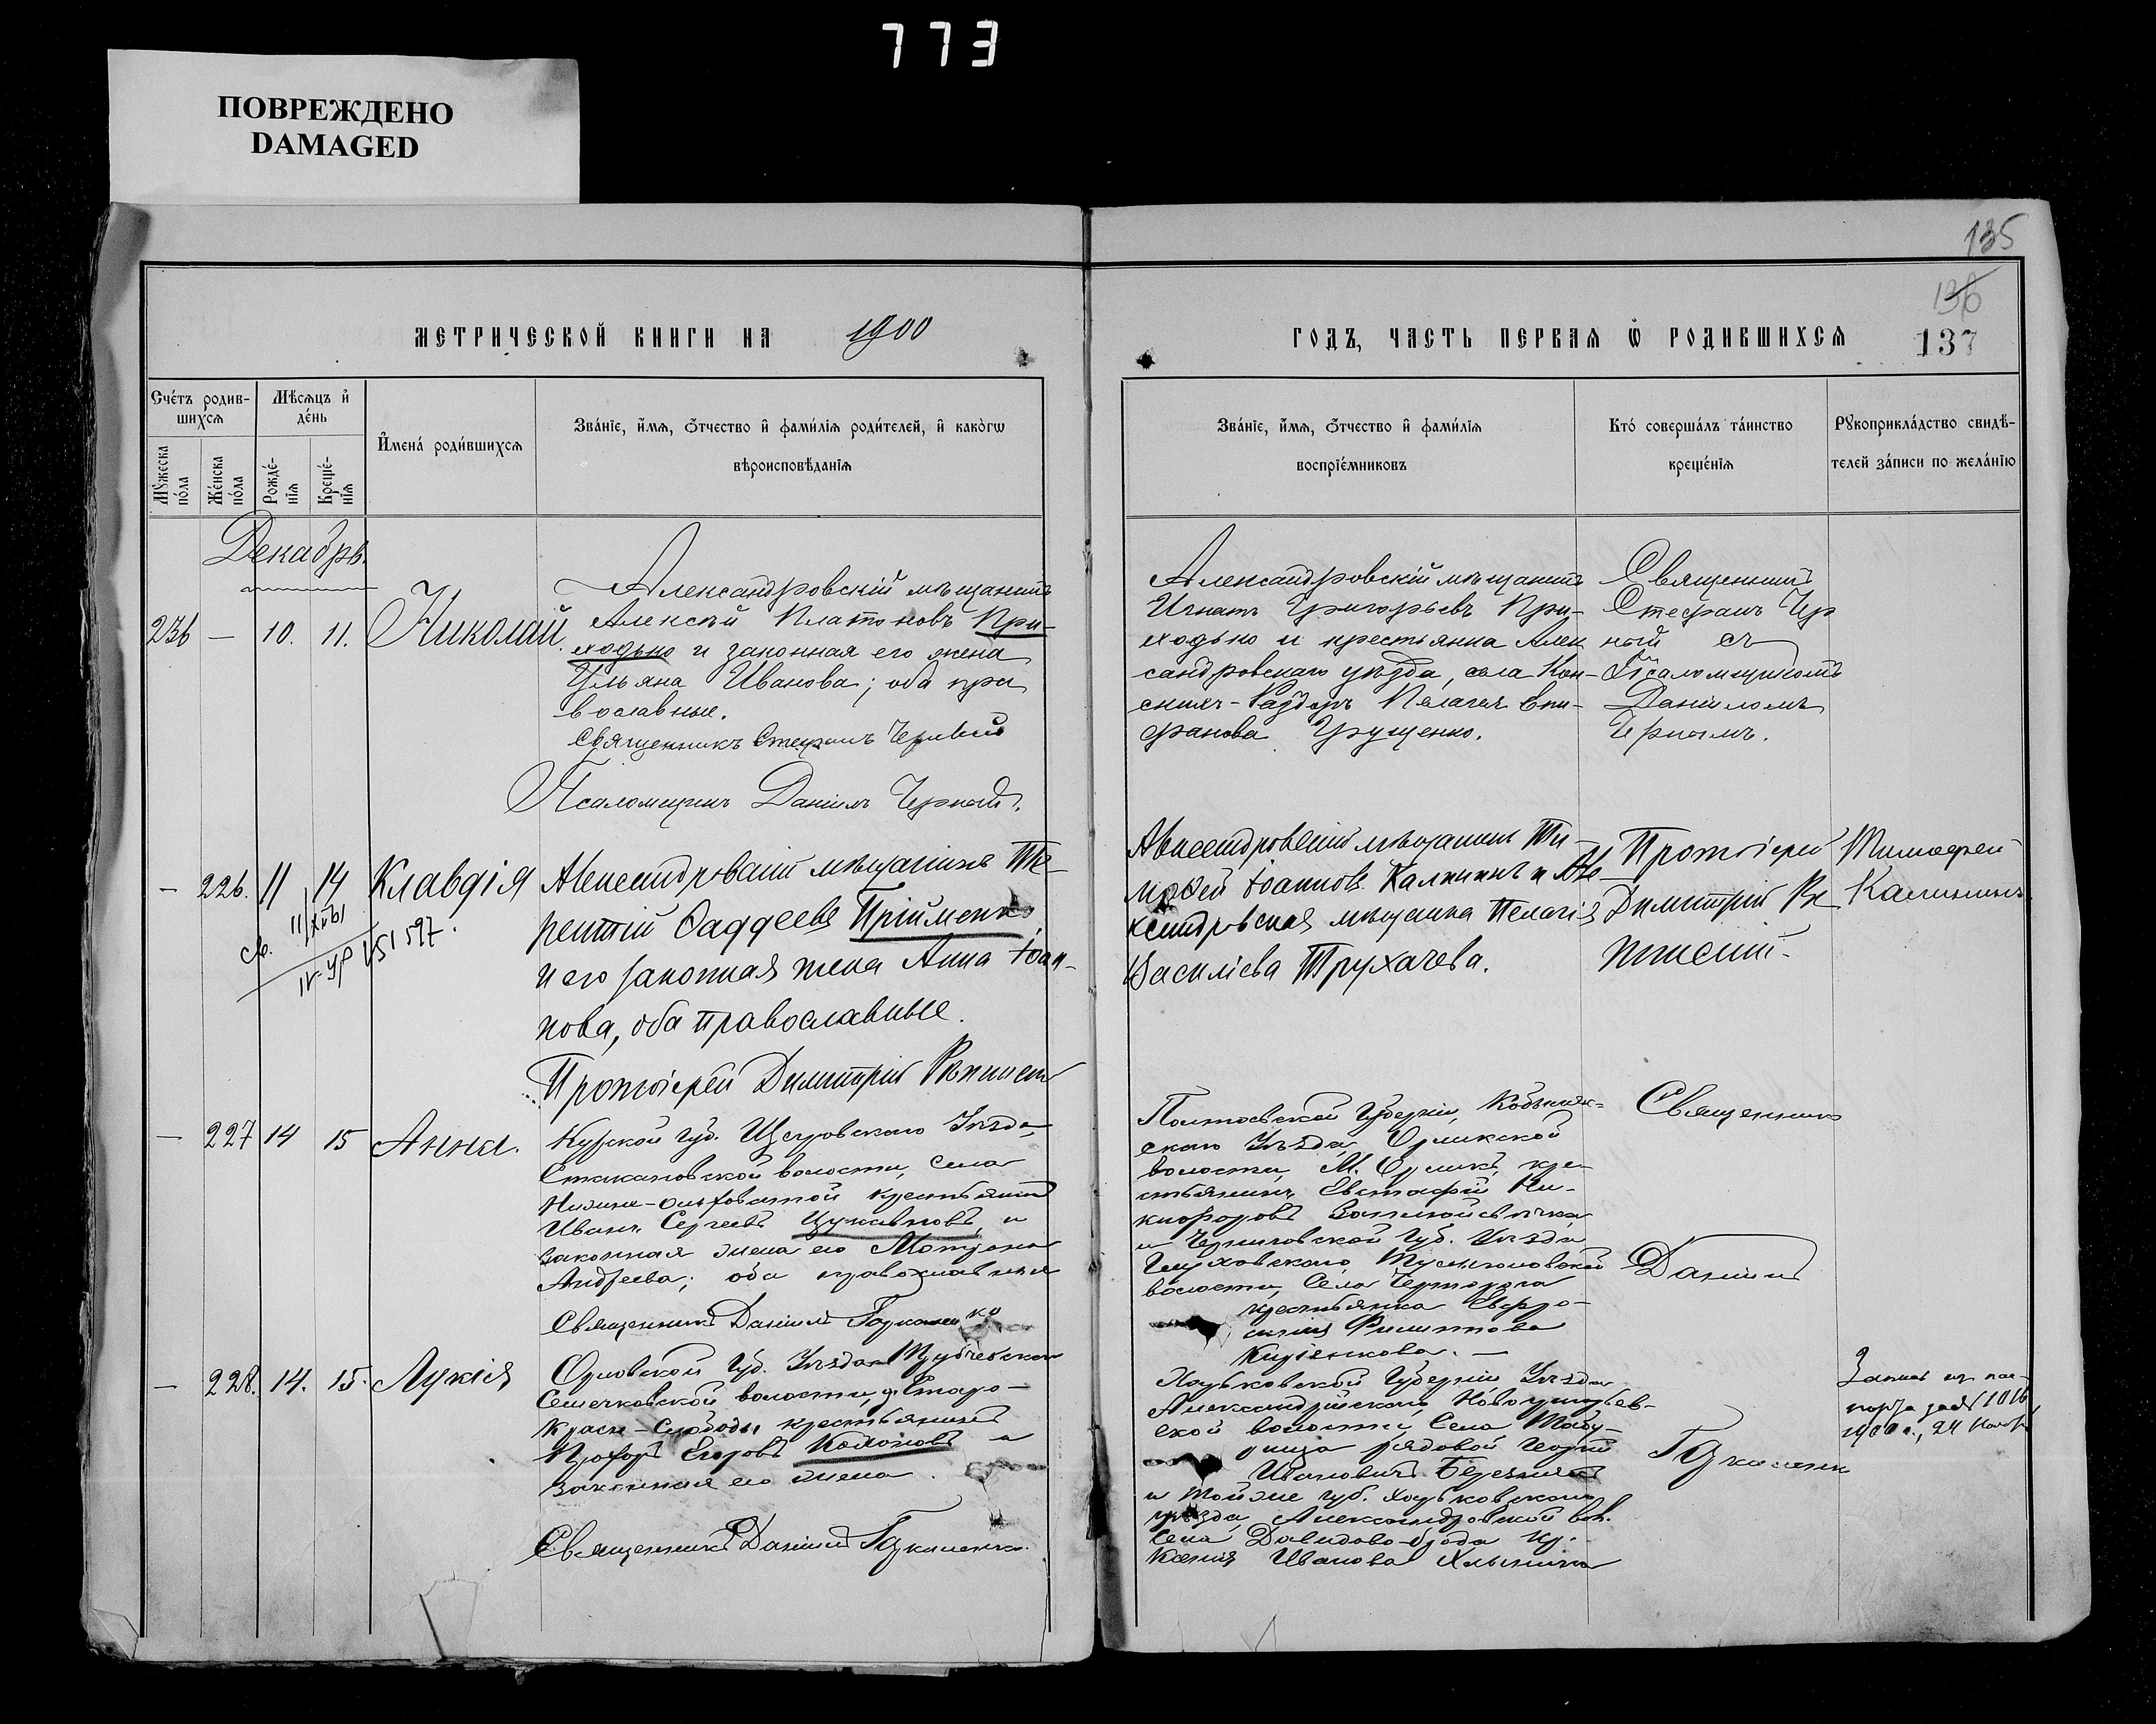 773
ПОВРЕЖДЕНО
DAMAGED
135
136
МЕТРИЧЕСКОЙ КНИГИ НА 1900
ГОДЪ, ЧАСТЬ ПЕРВАЯ Ѿ РОДИВШИХСЯ
137
Счетъ родив-
шихся
Мѣсяцъ и
день
Мужеска
пола
Женска
пола
Рожде-
нія
Креще-
нія
Имена родившихся
Званіе, имя, отчество и фамилія родителей, и какогѡ
вѣроисповѣданія
Званіе, имя, отчество и фамилія
воспріемниковъ
Кто совершалъ таинство
крещенія
Рукоприкладство свидѣ-
телей записи по желанію
Декабрь.
236 — 10. 11. Николай.
Александровскій мѣщанинъ
Алексѣй Платоновъ При-
ходько и законная его жена
Ульяна Иванова; оба пра
вославные.
Священникъ Стефанъ Черный
Псаломщикъ Даніилъ Черный.
Александровскій мѣщанинъ
Игнатъ Григорьевъ При-
ходько и крестьянка Алек
сандровскаго уѣзда, села Кон-
скихъ-Раздоръ Пелагея Епи-
фанова Грущенко.
Священникъ
Стефанъ Чер
ный съ
Псаломщикомъ
Даніиломъ
Чернымъ.
— 226. 11 14 Клавдія
св. 11/XII
IV-УР 151597.
Александровскій мѣщанинъ Те-
рентій Фаддеевъ Прійменко
и его законная жена Анна Іоан-
нова, оба православные.
Протоіерей Димитрій
Александровскій мѣщанинъ Ти-
мофей Іоанновъ Калининъ и Але-
ксандровская мѣщанка Пелагія
Василіева Трухачева.
Протоіерей
Димитрій
Тимофей
Калининъ
— 227 14 15 Анна.
Курской губ. Щигровскаго Уѣзда,
Стакановской волости, Села
крестьянинъ
Иванъ Сергеевъ и
законная жена его Матрона
Андреева; оба православныя
Священникъ Даніилъ
Полтавской Губерніи, Кобыляк-
скаго Уѣзда, Орликской
волости, М. Орликъ, кре-
стьянинъ Евстафій Ни-
кифоровъ
и Черниговской Губ. Уѣзда
Глуховскаго,
волости, Села
крестьянка Евфро-
синія Филиппова
Священникъ
Даніилъ
— 228. 14. 15. Лукія
Орловской Губ. Уѣзда Трубчевскаго
волости, Старо-
Красн-Слободы крестьянинъ
Прохоръ Егоровъ и
законная его жена
Священникъ Даніилъ
Харьковской Губерніи Уѣзда
волости, Села
рядовой Георгій
Ивановичъ
и тойже губ. Харьковскаго
уѣзда, Александровской вол.
Села Давидово-брода кр.
Ксенія Иванова
1900 г., 24 Ноябр.